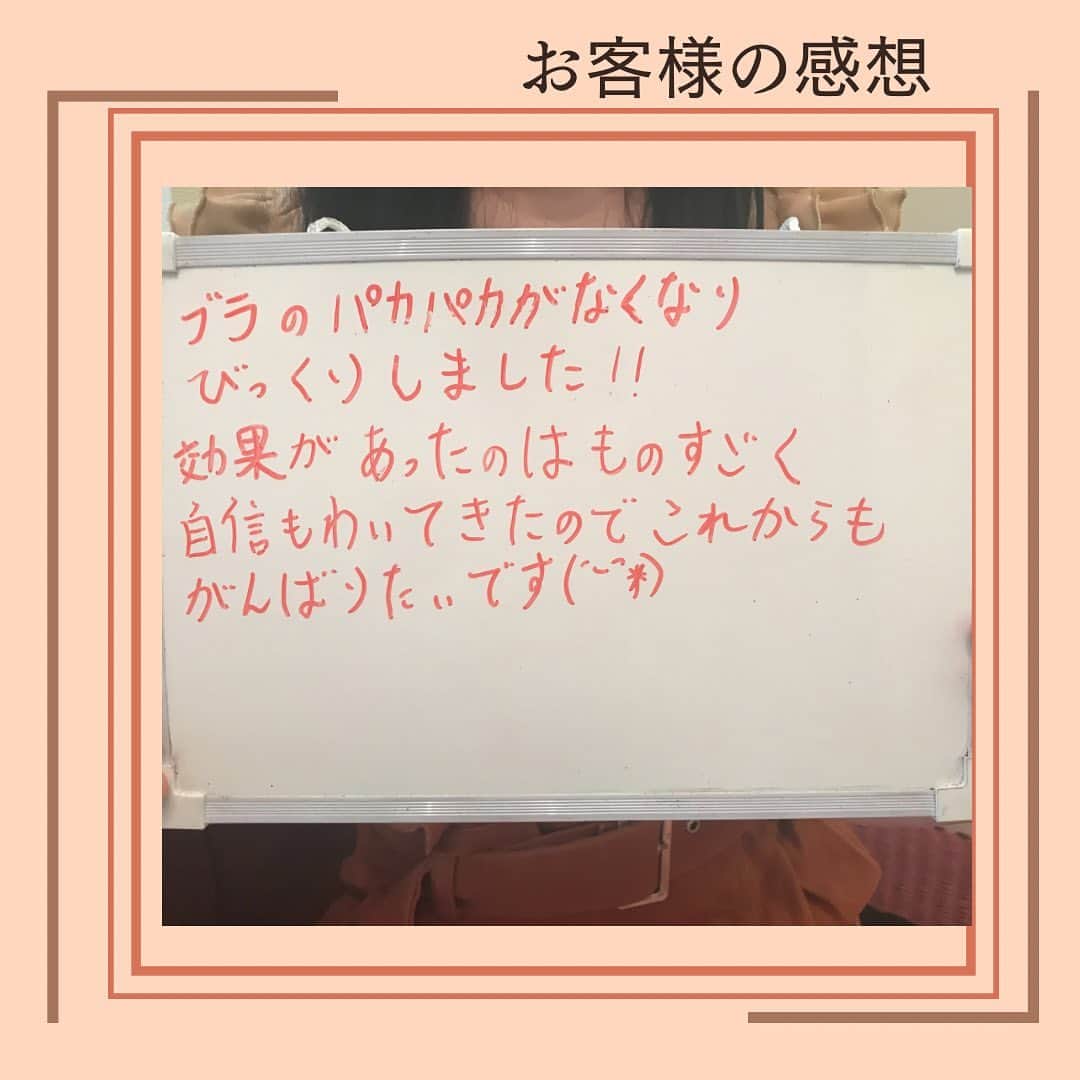 お客様の感想
ブラのパカパカがなくなり
びっくりしました!!
効果があったのはものすごく
自信もわいてきたのでこれからも
がんばりたいです(˘⌣˘*)